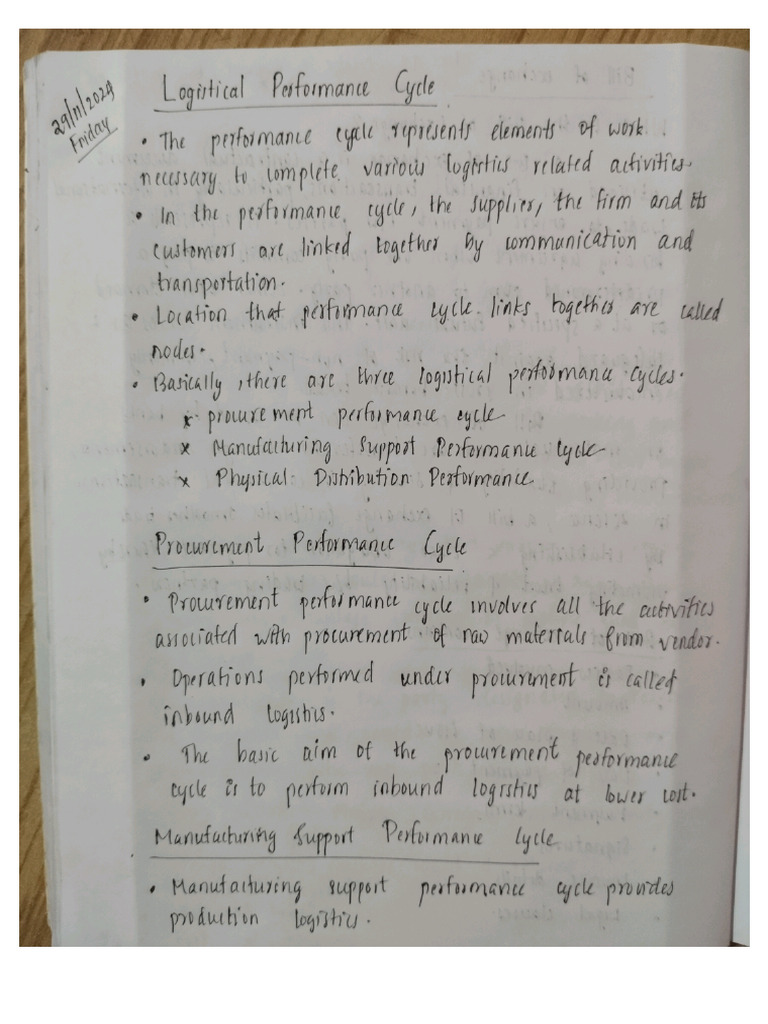 29/11/2024
Friday
Logistical Performance Cycle
• The performance cycle represents elements of work
necessary to complete various logistics related activities.
• In the performance cycle, the supplier, the firm and its
customers are linked together by communication and
transportation.
• Location that performance cycle links together are called
nodes.
• Basically, there are three logistical performance cycles.
x procurement performance cycle
x Manufacturing Support Performance Cycle
x Physical Distribution Performance
Procurement Performance Cycle
• Procurement performance cycle involves all the activities
associated with procurement of raw materials from vendor.
• Operations performed under procurement is called
inbound logistics.
• The basic aim of the procurement performance
cycle is to perform inbound logistics at lower cost.
Manufacturing Support Performance Cycle
• Manufacturing support performance cycle provides
production logistics.